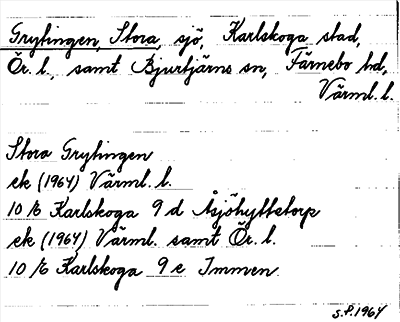 Grytingen, Stora, sjö, Karlskoga stad,
Ör. l., samt Bjurtjärns sn, Färnebo hd,
Värml. l.
Stora Grytingen
ek (1964) Värml. l.
10 E Karlskoga 9 d Åsjöhyttetorp
ek (1964) Värml. samt Ör. l.
10 E Karlskoga 9 e Immen.
S.P. 1964